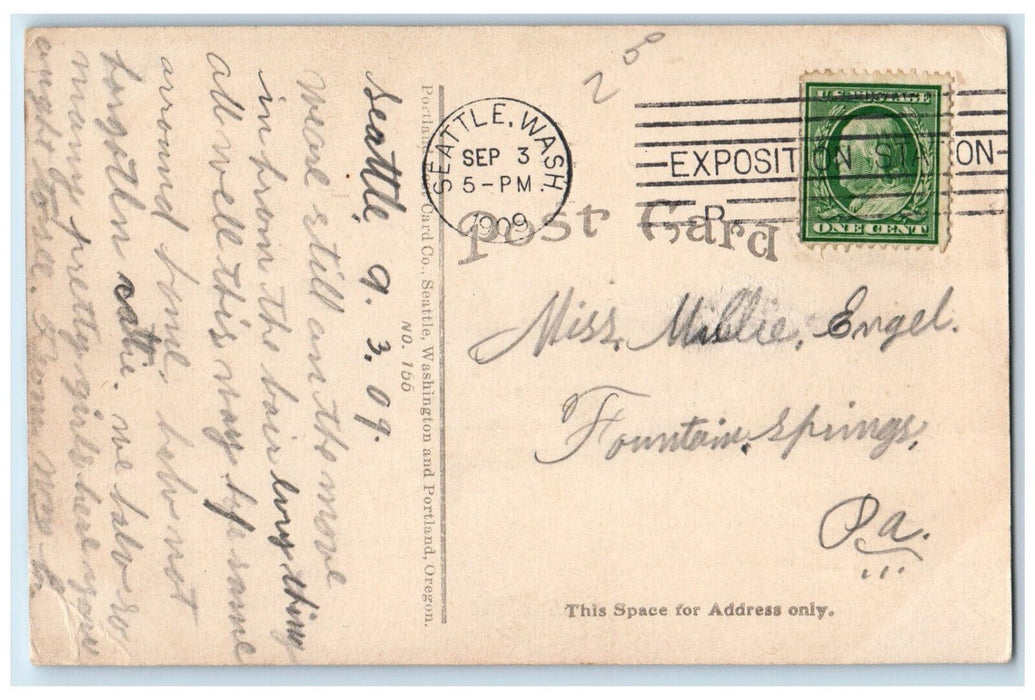 Seattle, 9. 3. 09.
weare still on the move
in from the bair evrything
all well this way
arround home.
forgotten we
many pretty girls here you
ought to see.
Portland Card Co., Seattle, Washington and Portland, Oregon.
NO. 155
28
SEATTLE, WASH.
SEP 3
5-PM
1909
EXPOSITION STATION
U.S. POSTAGE
ONE CENT
Post Card
Miss. Millie. Engel.
Fountain. Springs.
Pa.
This Space for Address only.